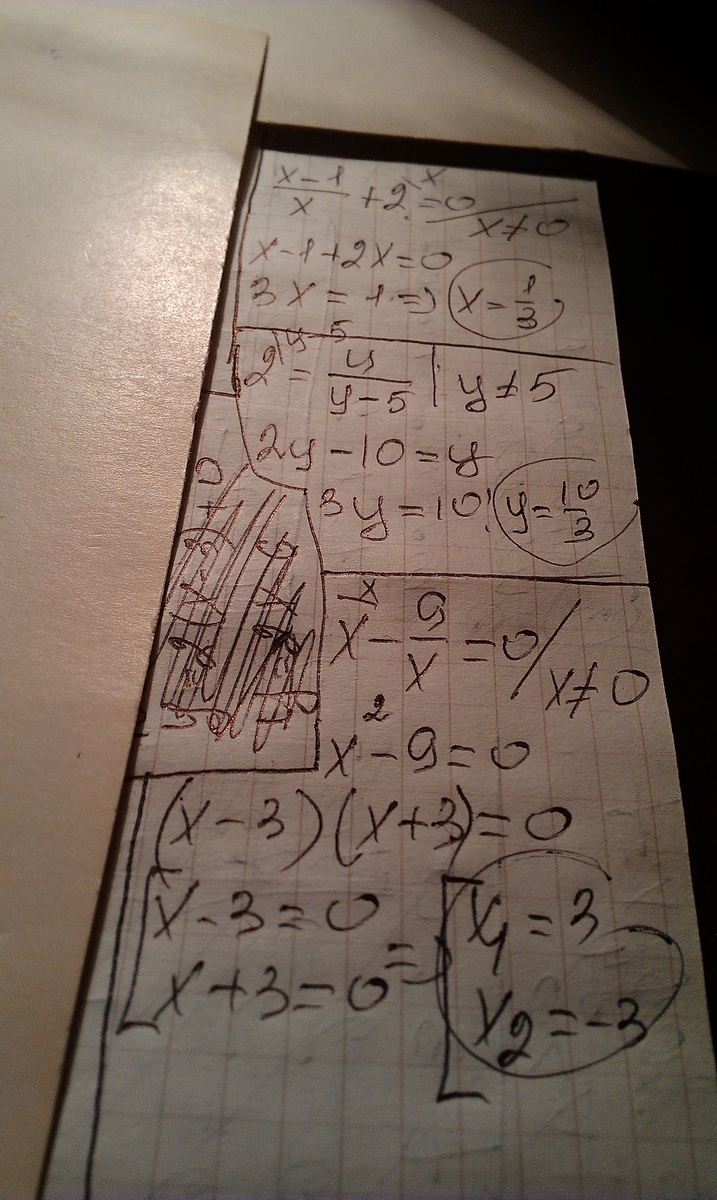 x-1/x + 2\x = 0 / x≠0
x-1+2x=0
3x = 1 => x = 1/3
2\y-5 = y/y-5 | y≠5
2y-10=y
3y=10! y=10/3
x\x - 9/x = 0 / x≠0
x²-9=0
(x-3)(x+3)=0
[x-3=0 => [x₁=3
x+3=0 x₂=-3